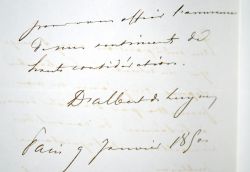 pour vous offrir l'assurance
de mes sentiments de
haute considération.
D. albert de Luynes
Paris 9 Janvier 185